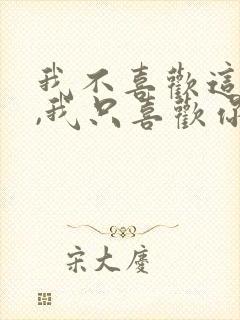 我不喜歡這
,我只喜歡你
宋大慶